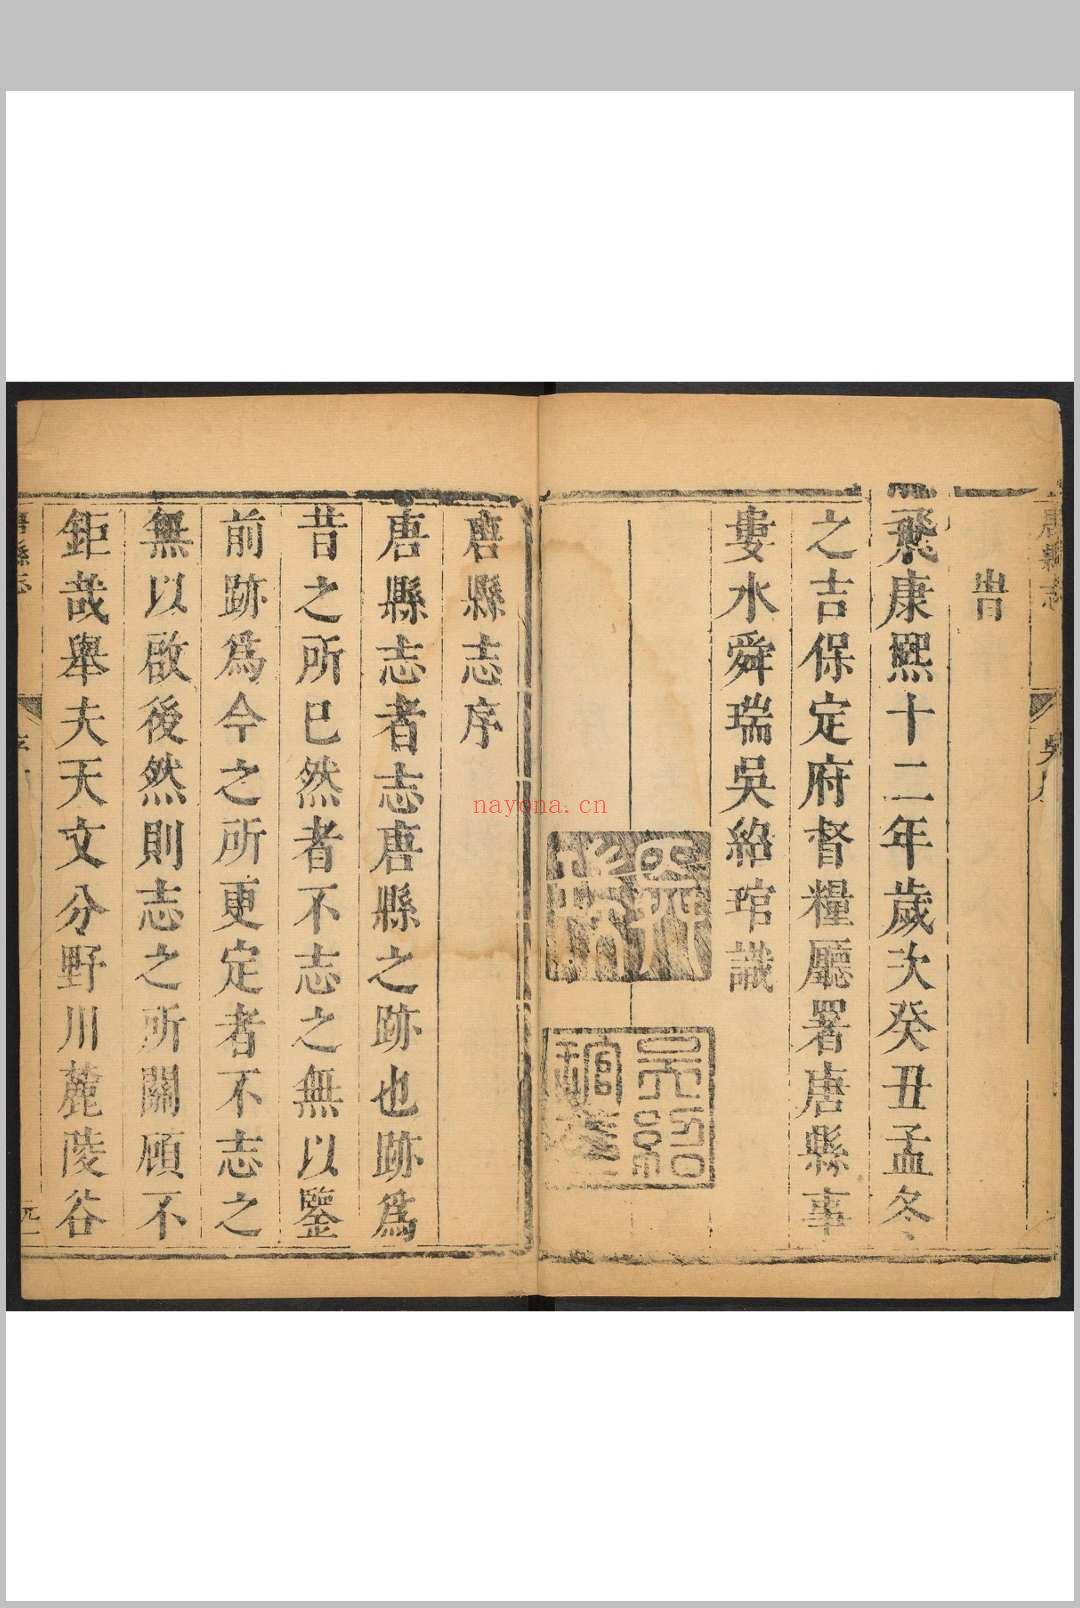 唐縣志
旹
康熙十二年歲次癸丑孟冬
之吉保定府督糧廳署唐縣事
婁水舜瑞吳紹琯識
吳紹琯
唐縣志序
唐縣志者志唐縣之跡也跡爲
昔之所已然者不志之無以鑒
前跡爲今之所更定者不志之
無以啟後然則志之所關顧不
鉅哉舉夫天文分野川麓陵谷
唐縣志
nayona.cn